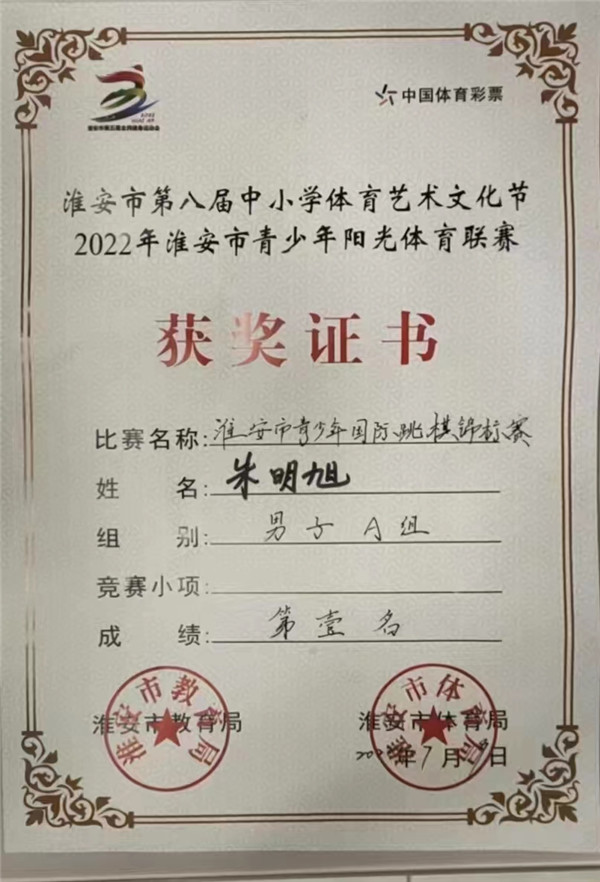 中国体育彩票
淮安市第八届中小学体育艺术文化节
2022年淮安市青少年阳光体育联赛
获奖证书
比赛名称:淮安市青少年国际跳棋锦标赛
姓 名:朱明旭
组 别:男子A组
竞赛小项:
成 绩:第壹名
淮安市教育局 淮安市体育局
年7月 日
淮安市教育局
淮安市体育局